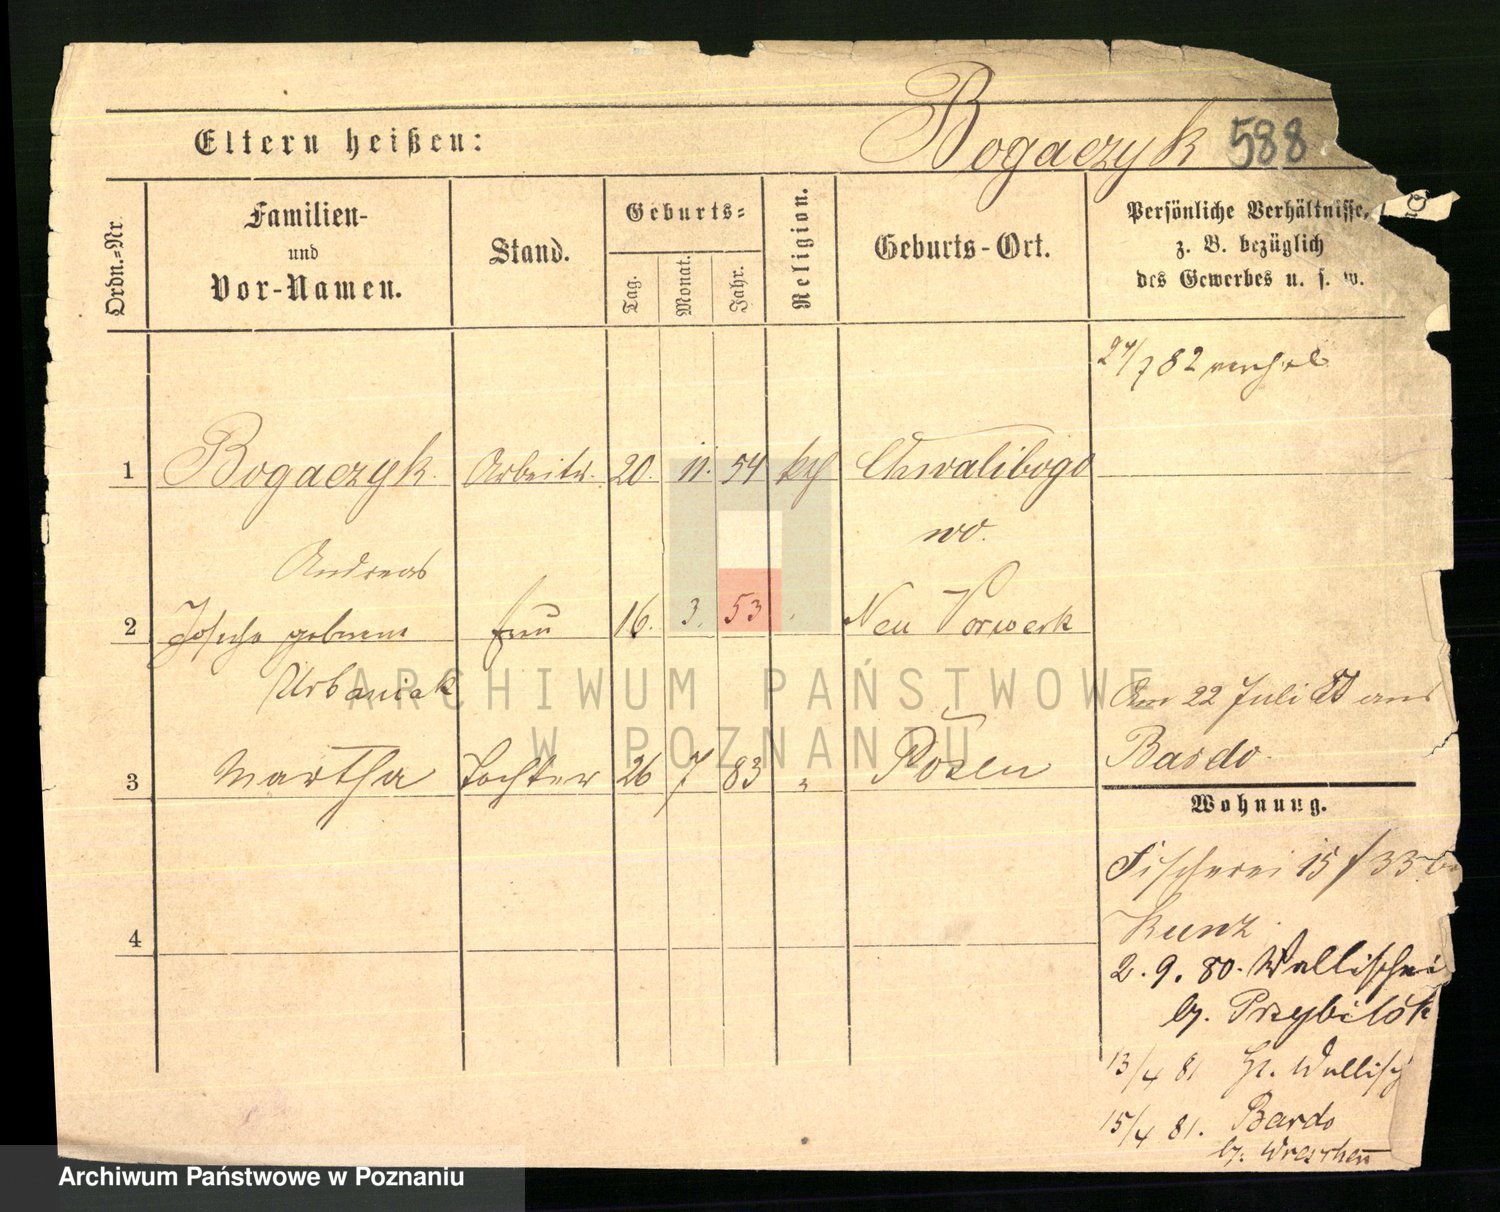 Eltern heißen:
Bogaczyk 588
Ordn.=Nr.
Familien-
und
Vor-Namen.
Stand.
Geburts=
Tag.
Monat.
Jahr.
Religion.
Geburts-Ort.
Persönliche Verhältnisse,
z. B. bezüglich
des Gewerbes u. s. w.
1 Bogaczyk Arbeiter 20. 11. 54 kth Chwalibogo
wo.
Andreas
2 geborene Frau 16. 3. 53 Neu Vorwerk
Urbaniak
Am 22 Juli aus
Bardo
3 Martha Tochter 26 7 83 " Posen
Wohnung.
Fischerei 15
Kunz
4
2. 9. 80. Wallischei
b. Przybilok
13/4 81 Wallisch
15/4 81. Bardo
b. Wreschen
ARCHIWUM PAŃSTWOWE
W POZNANIU
Archiwum Państwowe w Poznaniu